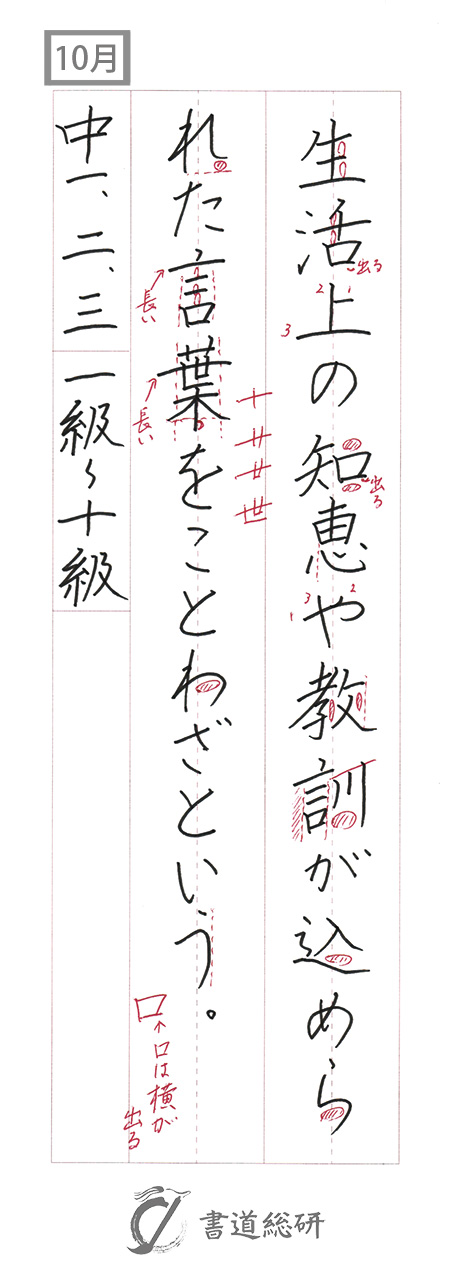 10月
生活上の知恵や教訓が込めら
れた言葉をことわざという。
中一、二、三
一級〜十級
出る
2 1
3
出る
3 2
1
長い
長い
十
廿
丗
世
口
↑口は横が
出る
書道総研